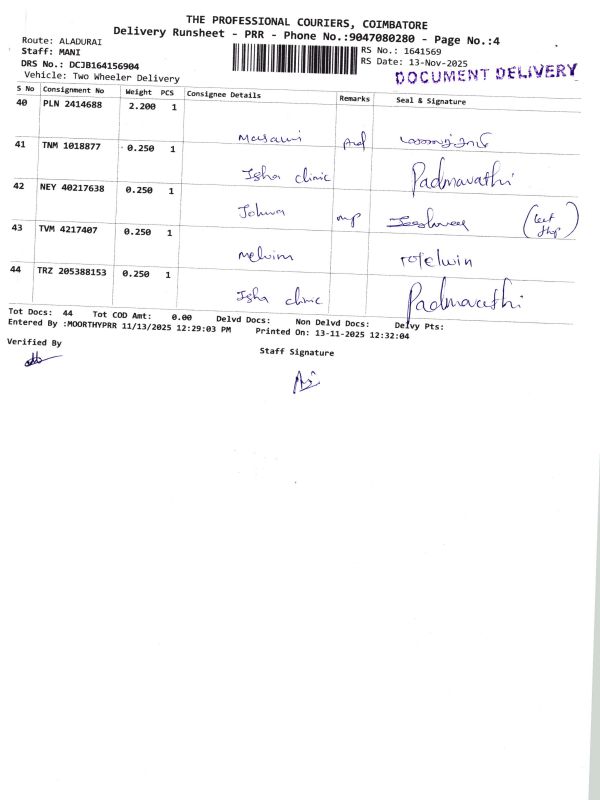 THE PROFESSIONAL COURIERS, COIMBATORE
Delivery Runsheet - PRR - Phone No.:9047080280 - Page No.:4
Route: ALADURAI
Staff: MANI
DRS No.: DCJB164156904
Vehicle: Two Wheeler Delivery
RS No.: 1641569
RS Date: 13-Nov-2025
DOCUMENT DELIVERY
S No Consignment No Weight PCS Consignee Details Remarks Seal & Signature
40 PLN 2414688 2.200 1
41 TNM 1018877 0.250 1 Isha clinic Padmavathi
42 NEY 40217638 0.250 1
43 TVM 4217407 0.250 1 Melvin
44 TRZ 205388153 0.250 1 Isha clinic Padmavathi
Tot Docs: 44 Tot COD Amt: 0.00 Delvd Docs: Non Delvd Docs: Delvy Pts:
Entered By :MOORTHYPRR 11/13/2025 12:29:03 PM Printed On: 13-11-2025 12:32:04
Verified By
Staff Signature